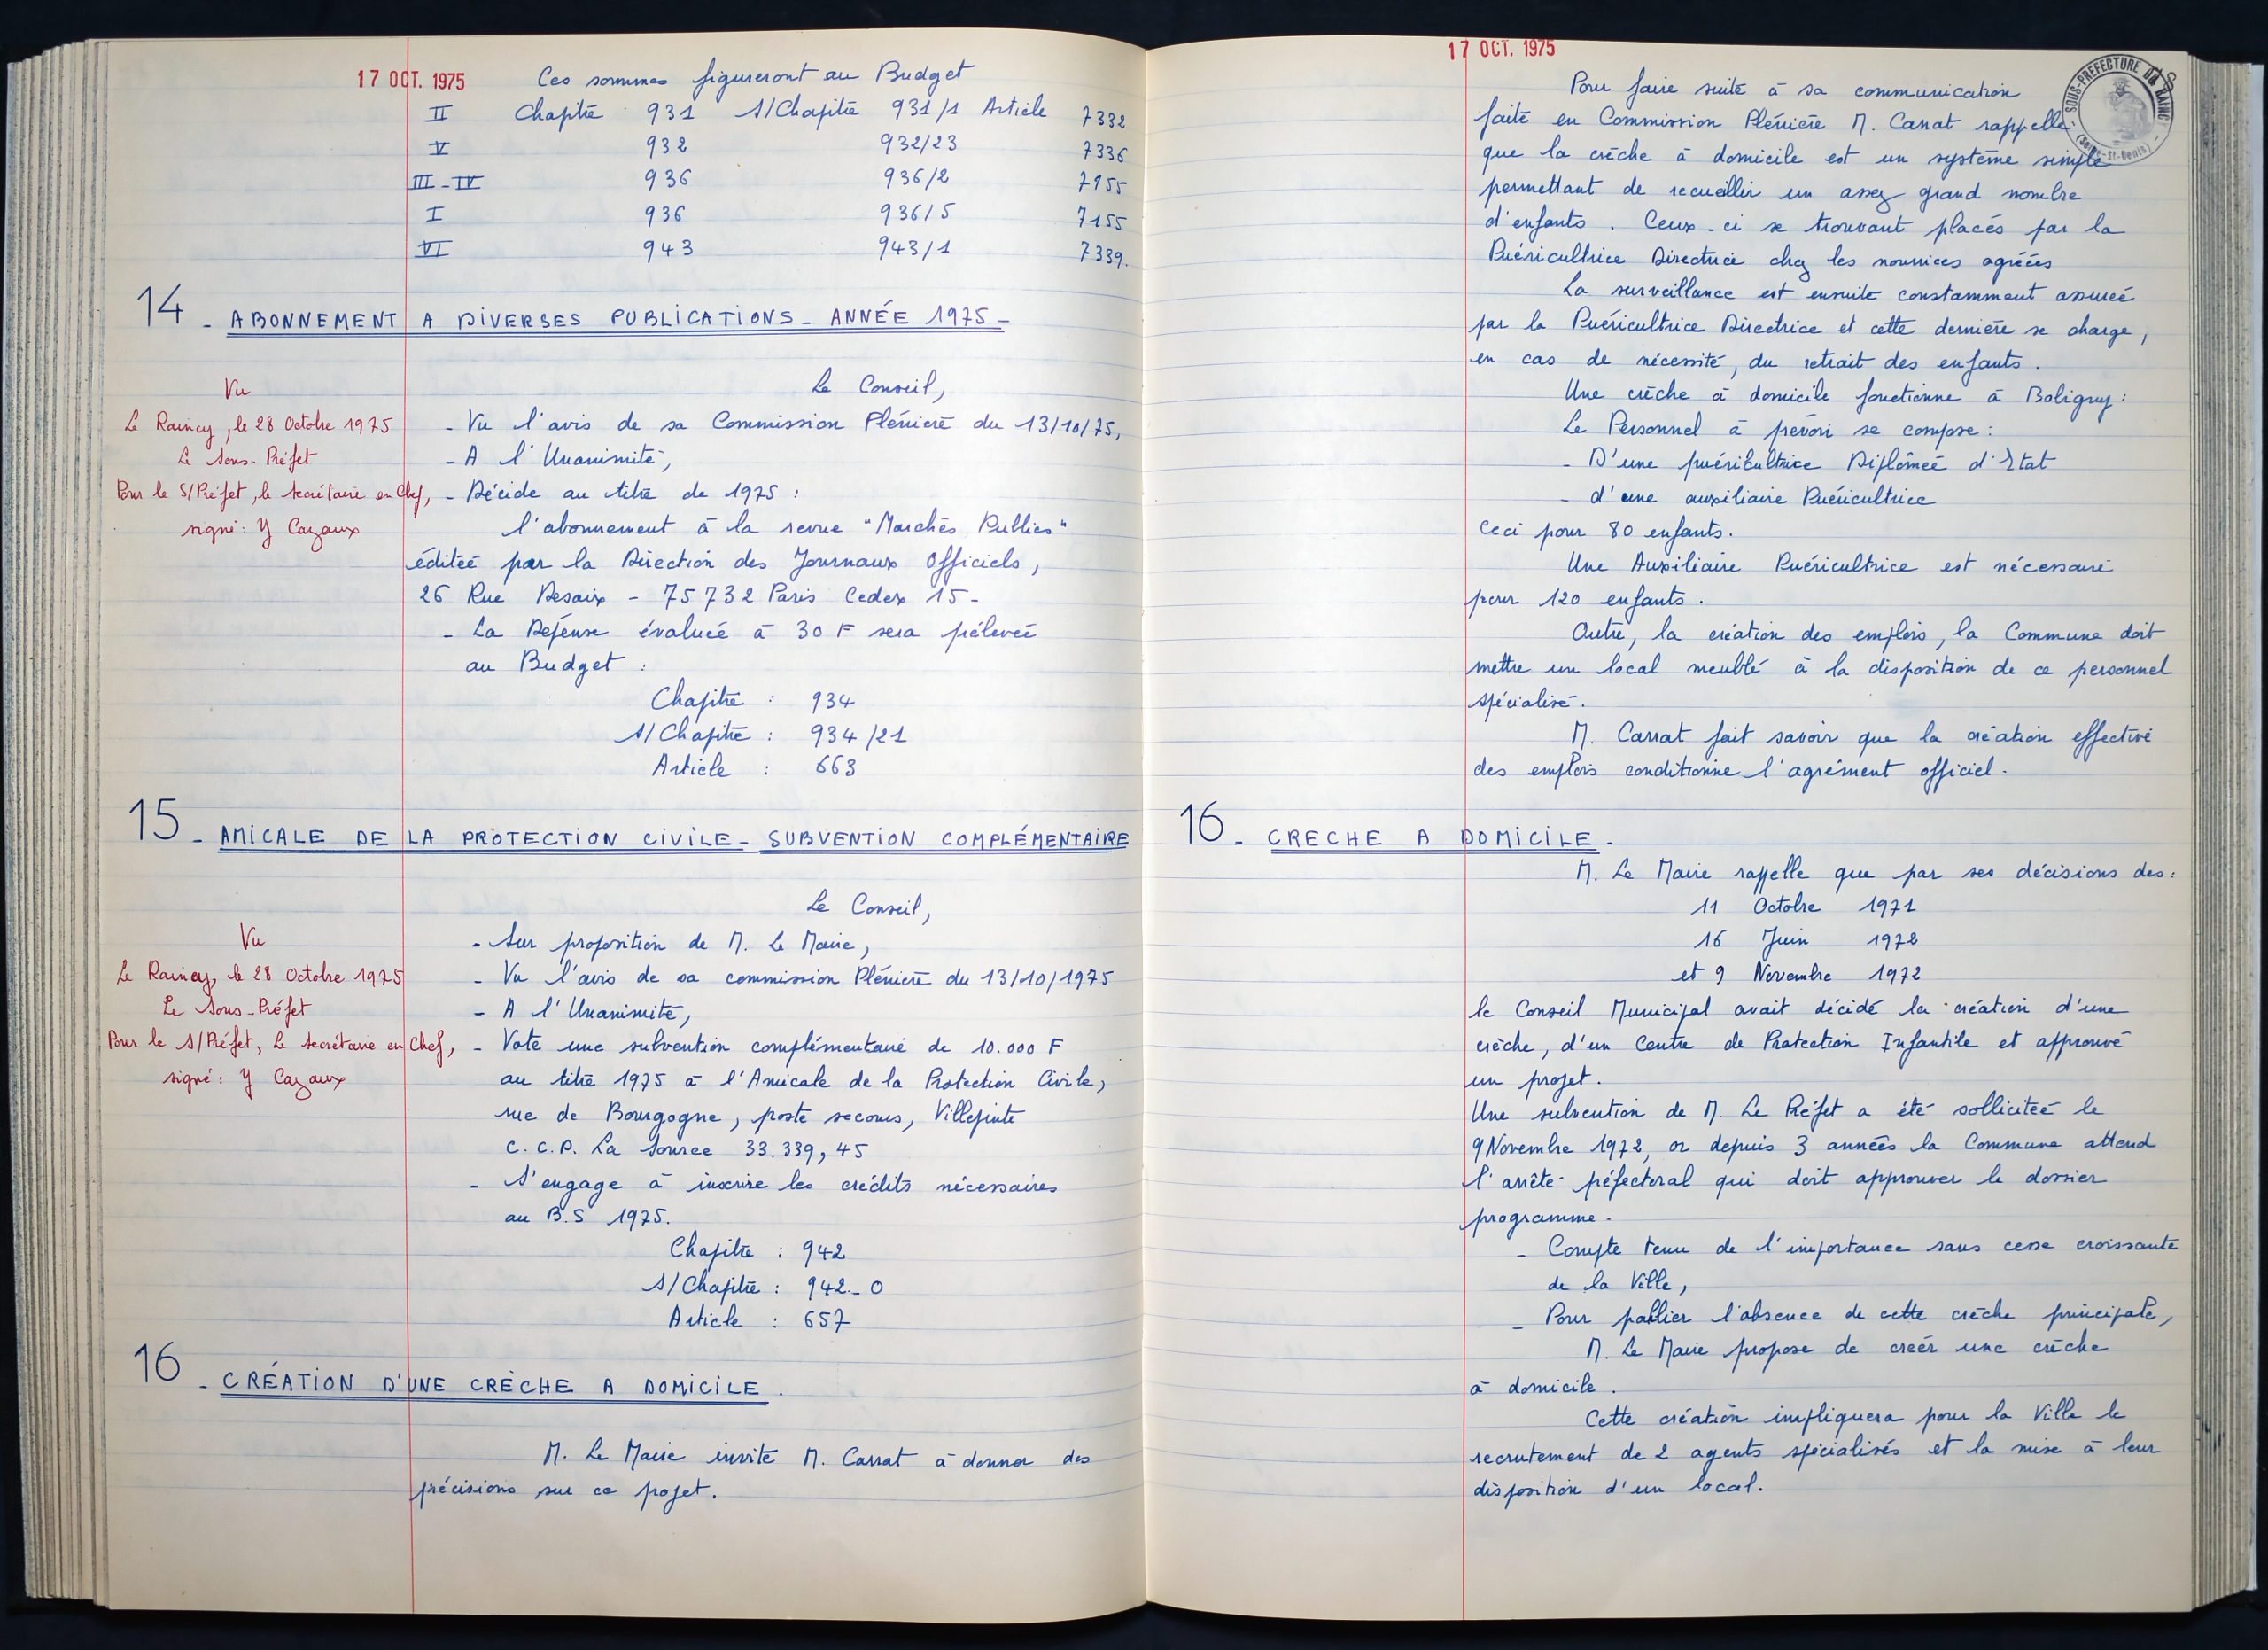 17 OCT. 1975
Ces sommes figureront au Budget
II Chapitre 931 S/Chapitre 931/1 Article 7332
V 932 932/23 7336
III-IV 936 936/2 7155
I 936 936/5 7155
VI 943 943/1 7339.
14 - ABONNEMENT A DIVERSES PUBLICATIONS - ANNÉE 1975 -
Le Conseil,
Vu
Le Raincy, le 28 Octobre 1975
Le Sous-Préfet
Pour le S/Préfet, le secrétaire en Chef,
signé: Y Cazaux
- Vu l'avis de sa Commission Plénière du 13/10/75,
- A l'Unanimité,
- Décide au titre de 1975 :
l'abonnement à la revue "Marchés Publics"
éditée par la Direction des Journaux Officiels,
26 Rue Desaix - 75732 Paris Cedex 15 -
- La Dépense évaluée à 30 F sera prélevée
au Budget :
Chapitre : 934
S/Chapitre : 934/21
Article : 663
15 - AMICALE DE LA PROTECTION CIVILE - SUBVENTION COMPLÉMENTAIRE
Le Conseil,
Vu
Le Raincy, le 28 Octobre 1975
Le Sous-Préfet
Pour le S/Préfet, Le secrétaire en Chef,
signé: Y Cazaux
- Sur proposition de M. Le Maire,
- Vu l'avis de sa commission Plénière du 13/10/1975
- A l'Unanimité,
- Vote une subvention complémentaire de 10.000 F
au titre 1975 à l'Amicale de la Protection Civile,
rue de Bourgogne, poste secours, Villepinte
C.C.P. La Source 33.339,45
- S'engage à inscrire les crédits nécessaires
au B.S 1975.
Chapitre : 942
S/Chapitre : 942-0
Article : 657
16 - CRÉATION D'UNE CRÈCHE A DOMICILE.
M. Le Maire invite M. Carrat à donner des
précisions sur ce projet.
17 OCT. 1975
SOUS-PREFECTURE DU RAINCY
(Seine-St-Denis)
Pour faire suite à sa communication
faite en Commission Plénière M. Carrat rappelle
que la crèche à domicile est un système simple
permettant de recueillir un assez grand nombre
d'enfants. Ceux-ci se trouvant placés par la
Puéricultrice Directrice chez les nourrices agréées
La surveillance est ensuite constamment assurée
par la Puéricultrice Directrice et cette dernière se charge,
en cas de nécessité, du retrait des enfants.
Une crèche à domicile fonctionne à Boligny:
Le Personnel à prévoir se compose:
- D'une puéricultrice Diplômée d'Etat
- d'une auxiliaire Puéricultrice
Ceci pour 80 enfants.
Une Auxiliaire Puéricultrice est nécessaire
pour 120 enfants.
Outre, la création des emplois, la Commune doit
mettre un local meublé à la disposition de ce personnel
spécialisé.
M. Carrat fait savoir que la création effective
des emplois conditionne l'agrément officiel.
16 - CRECHE A DOMICILE -
M. Le Maire rappelle que par ses décisions des:
11 Octobre 1971
16 Juin 1972
et 9 Novembre 1972
le Conseil Municipal avait décidé la création d'une
crèche, d'un Centre de Protection Infantile et approuvé
un projet.
Une subvention de M. Le Préfet a été sollicitée le
9 Novembre 1972, or depuis 3 années la Commune attend
l'arrêté préfectoral qui doit approuver le dossier
programme.
- Compte tenu de l'importance sans cesse croissante
de la Ville,
- Pour pallier l'absence de cette crèche principale,
M. Le Maire propose de créer une crèche
à domicile.
Cette création impliquera pour la Ville le
recrutement de 2 agents spécialisés et la mise à leur
disposition d'un local.